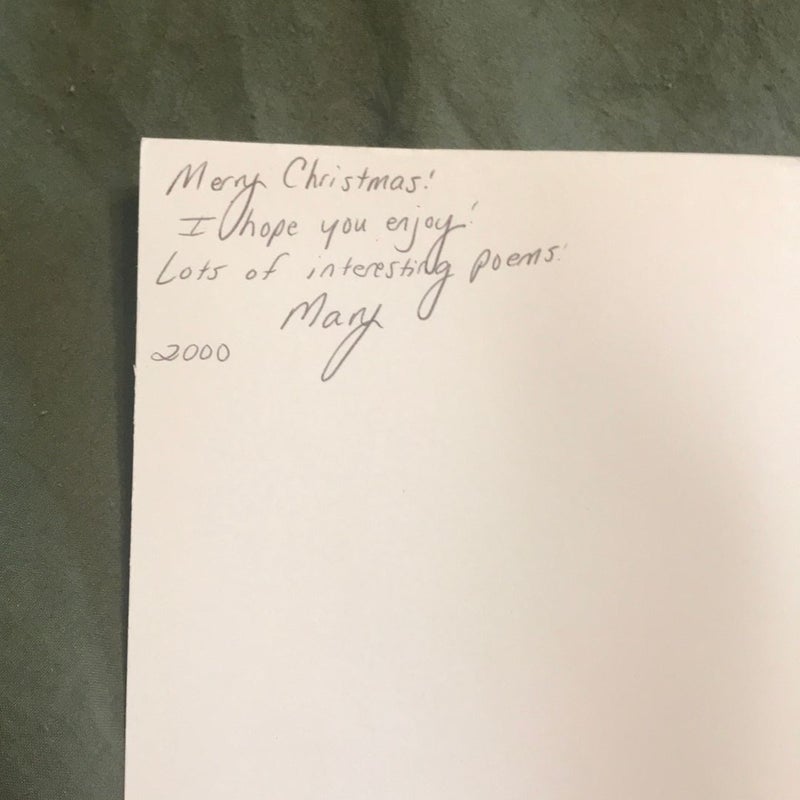 Merry Christmas!
I hope you enjoy!
Lots of interesting poems!
Mary
2000